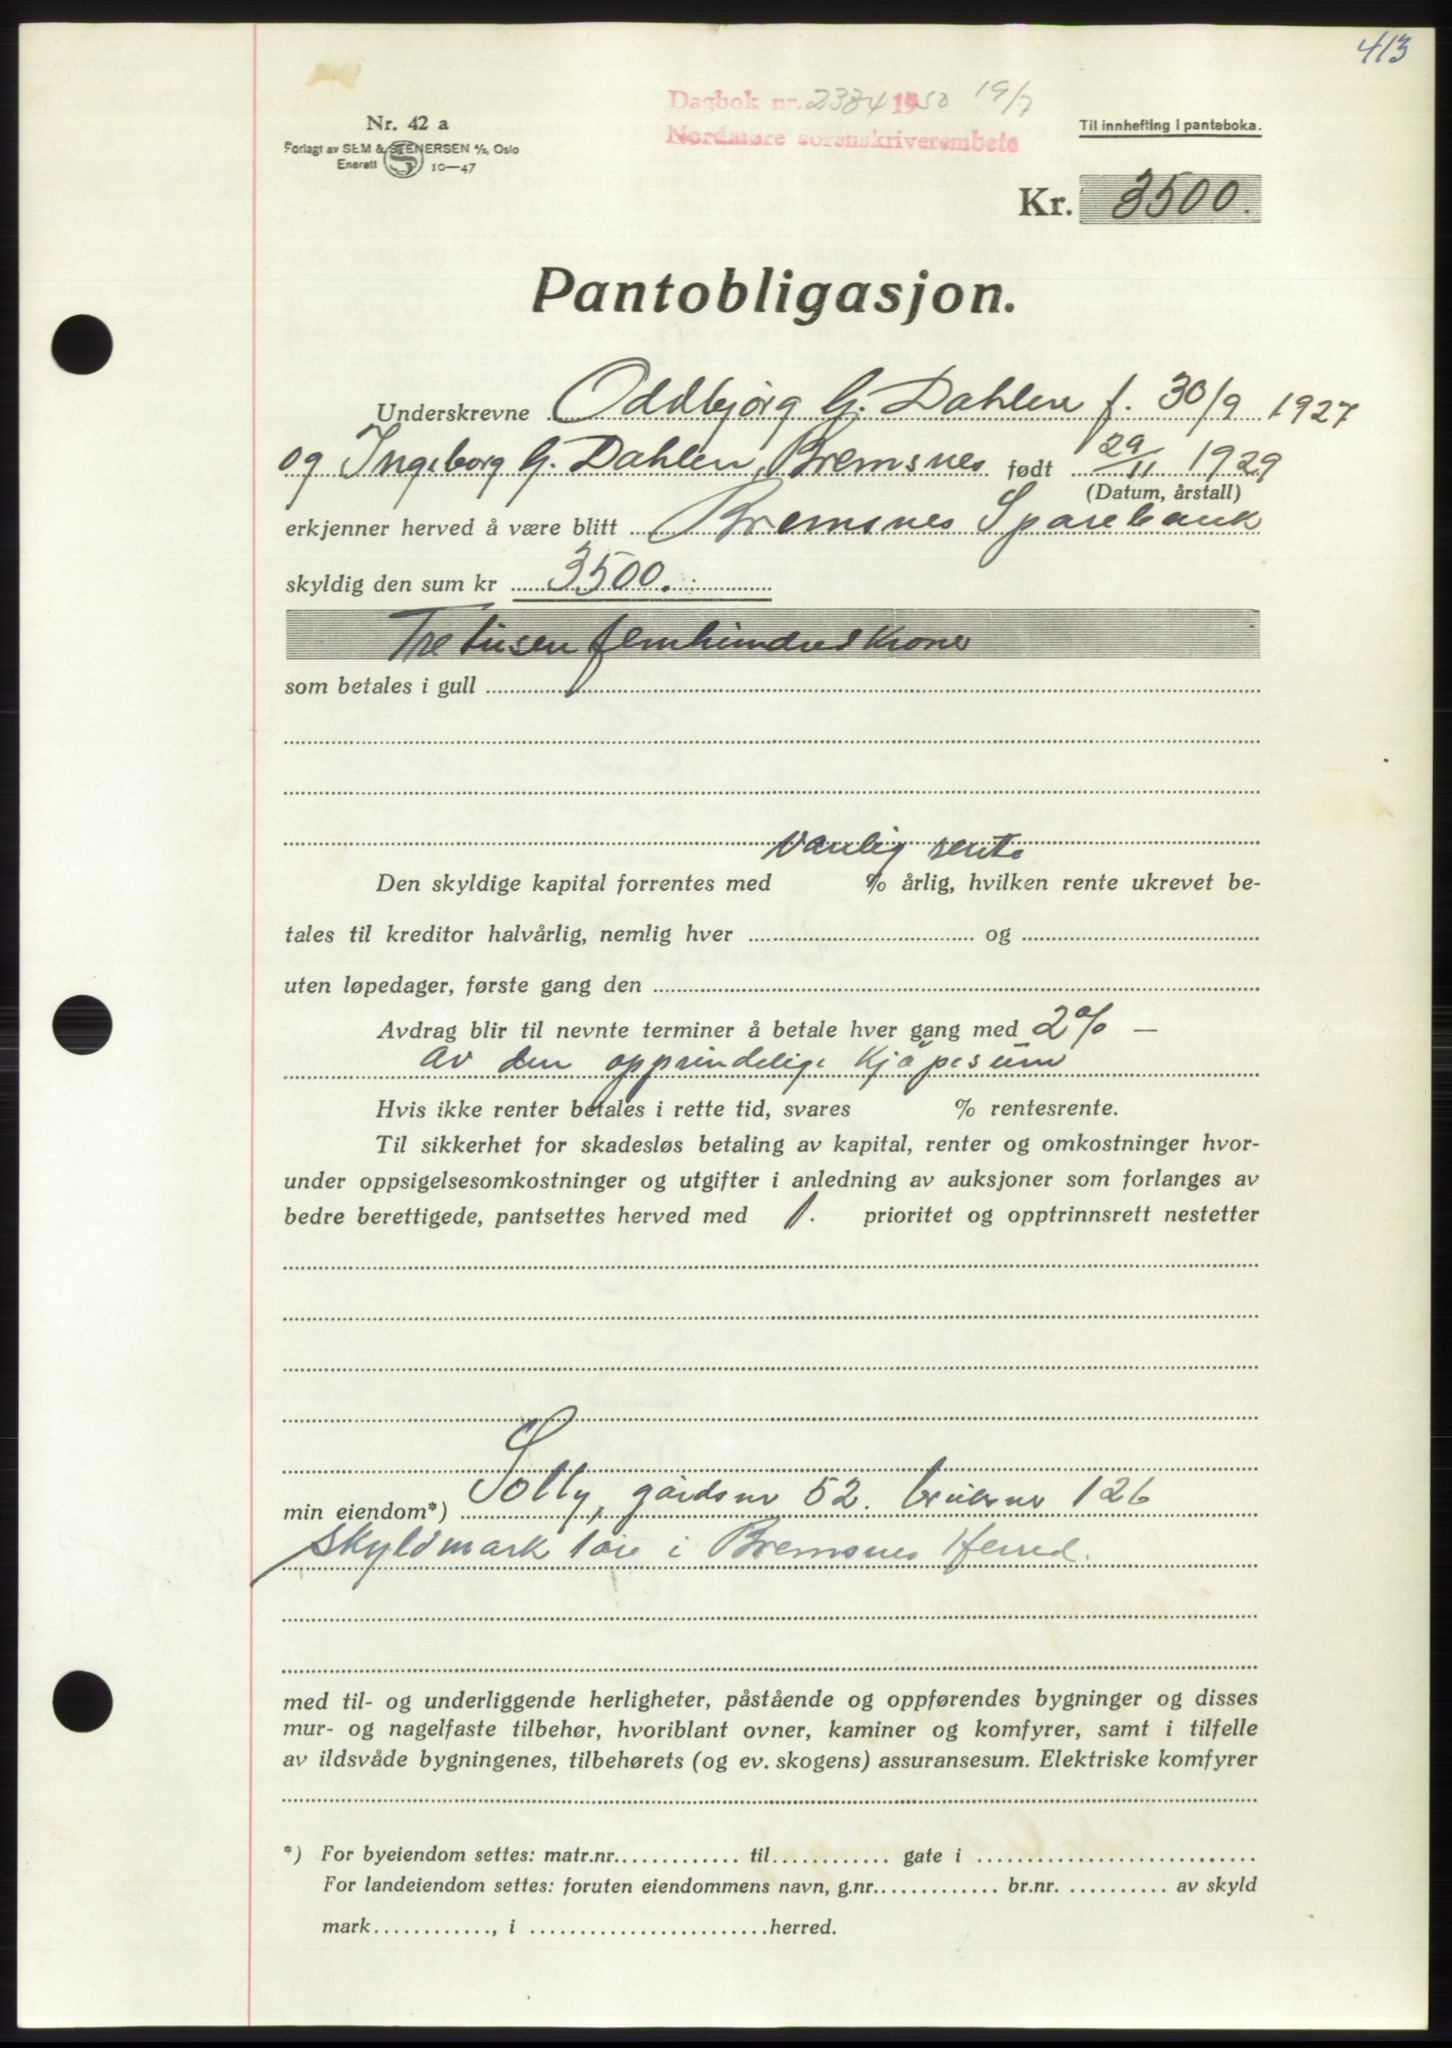 413
Dagbok nr. 2384 1950 19/7
Nordmøre sorenskriverembete
Nr. 42 a
Forlagt av SEM & STENERSEN A/S, Oslo
Enerett S 10—47
Til innhefting i panteboka.
Kr. 3500.
Pantobligasjon.
Underskrevne Oddbjørg G. Dahlen f. 30/9 1927
og Ingeborg G. Dahlen, Bremsnes født 29/11 1929
(Datum, årstall)
erkjenner herved å være blitt Bremsnes Sparebank
skyldig den sum kr 3500.
Tre tusen femhundred kroner
som betales i gull
Vanlig rente
Den skyldige kapital forrentes med % årlig, hvilken rente ukrevet be-
tales til kreditor halvårlig, nemlig hver og
uten løpedager, første gang den
Avdrag blir til nevnte terminer å betale hver gang med 2% —
av den opprindelige Kjøpesum
Hvis ikke renter betales i rette tid, svares % rentesrente.
Til sikkerhet for skadesløs betaling av kapital, renter og omkostninger hvor-
under oppsigelsesomkostninger og utgifter i anledning av auksjoner som forlanges av
bedre berettigede, pantsettes herved med 1. prioritet og opptrinnsrett nestetter
min eiendom*) Solly, gårdsnr 52. bruksnr 126
skyldmark 1 øre i Bremsnes Herred.
med til- og underliggende herligheter, påstående og oppførendes bygninger og disses
mur- og nagelfaste tilbehør, hvoriblant ovner, kaminer og komfyrer, samt i tilfelle
av ildsvåde bygningenes, tilbehørets (og ev. skogens) assuransesum. Elektriske komfyrer
*) For byeiendom settes: matr.nr. til gate i
For landeiendom settes: foruten eiendommens navn, g.nr. br.nr. av skyld
mark, i herred.